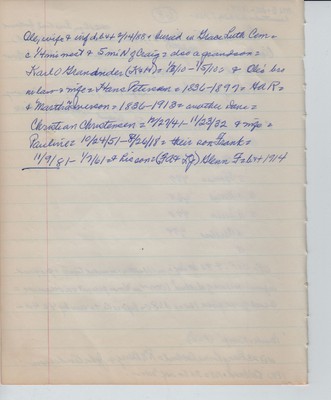 Ole, wife & inf. d. b & d 2/14/88 = buried in Grace Luth Cem =
c 1/4 mi west & 5 mi N of Craig = also a grandson =
Karl Granander = 1/2/10 - 1/5/10 = & Ole's bro
in law = wife = Hans Peterson = 1836 - 1897 =
& Martha Emerson = 1836 - 1918 = another Dane =
Christian Christensen = 12/27/41 - 11/23/32 & wife =
Pauline = 10/24/51 - 8/26/18 = their son Frank =
11/9/81 - 1/7/61 & his son = Glenn F = b & d 1914